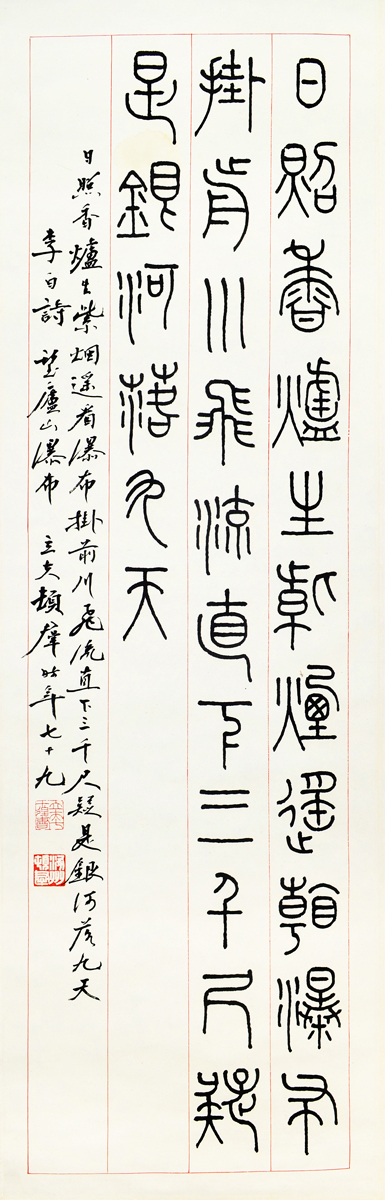 日照香爐生紫煙遙看瀑布
掛前川飛流直下三千尺疑
是銀河落九天
日照香爐生紫烟遥看瀑布掛前川飛流直下三千尺疑是銀河落九天
李白詩 望廬山瀑布 立夫 時年七十九